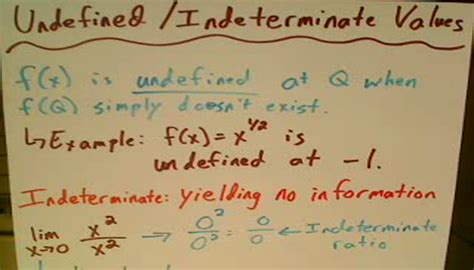 Undefined / Indeterminate Values
f(x) is undefined at Q when
f(Q) simply doesn't exist.
↳Example: f(x) = x^{1/2} is
undefined at -1.
Indeterminate: yielding no information
lim x→0 x²/x² → 0²/0² = 0/0 ← Indeterminate
ratio